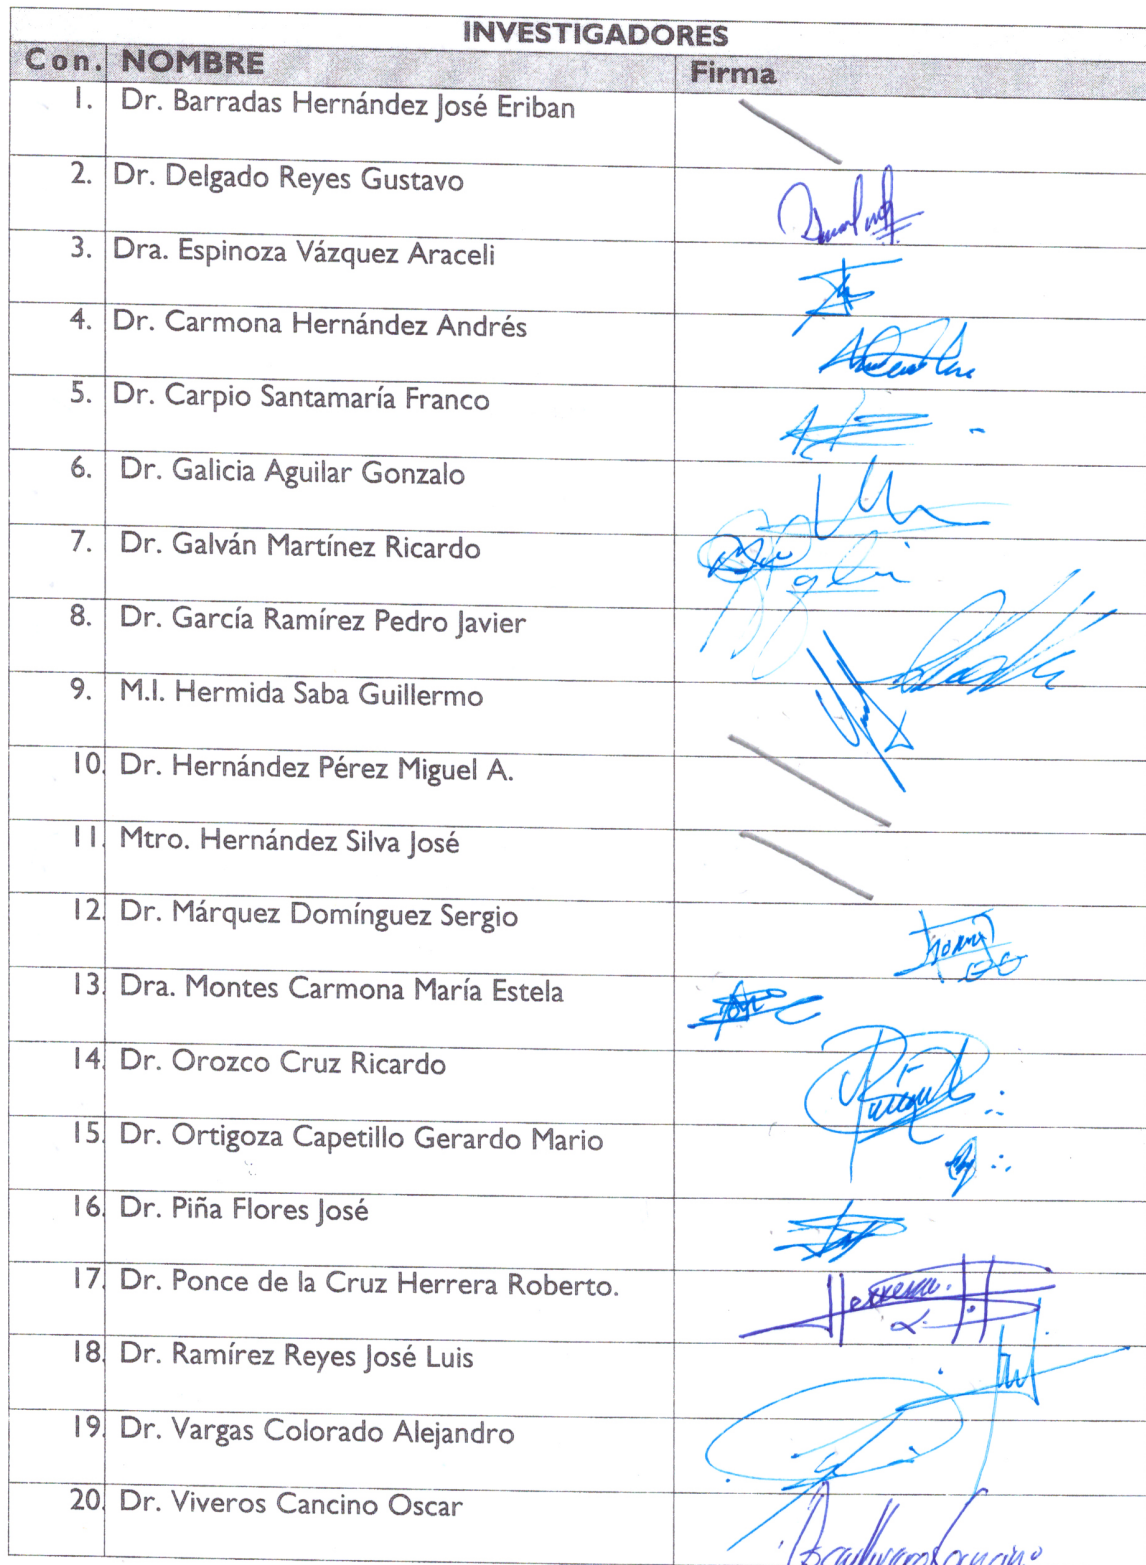 INVESTIGADORES
Con. NOMBRE Firma
1. Dr. Barradas Hernández José Eriban
2. Dr. Delgado Reyes Gustavo
3. Dra. Espinoza Vázquez Araceli
4. Dr. Carmona Hernández Andrés
5. Dr. Carpio Santamaría Franco
6. Dr. Galicia Aguilar Gonzalo
7. Dr. Galván Martínez Ricardo
8. Dr. García Ramírez Pedro Javier
9. M.I. Hermida Saba Guillermo
10. Dr. Hernández Pérez Miguel A.
11. Mtro. Hernández Silva José
12. Dr. Márquez Domínguez Sergio
13. Dra. Montes Carmona María Estela
14. Dr. Orozco Cruz Ricardo
15. Dr. Ortigoza Capetillo Gerardo Mario
16. Dr. Piña Flores José
17. Dr. Ponce de la Cruz Herrera Roberto.
18. Dr. Ramírez Reyes José Luis
19. Dr. Vargas Colorado Alejandro
20. Dr. Viveros Cancino Oscar